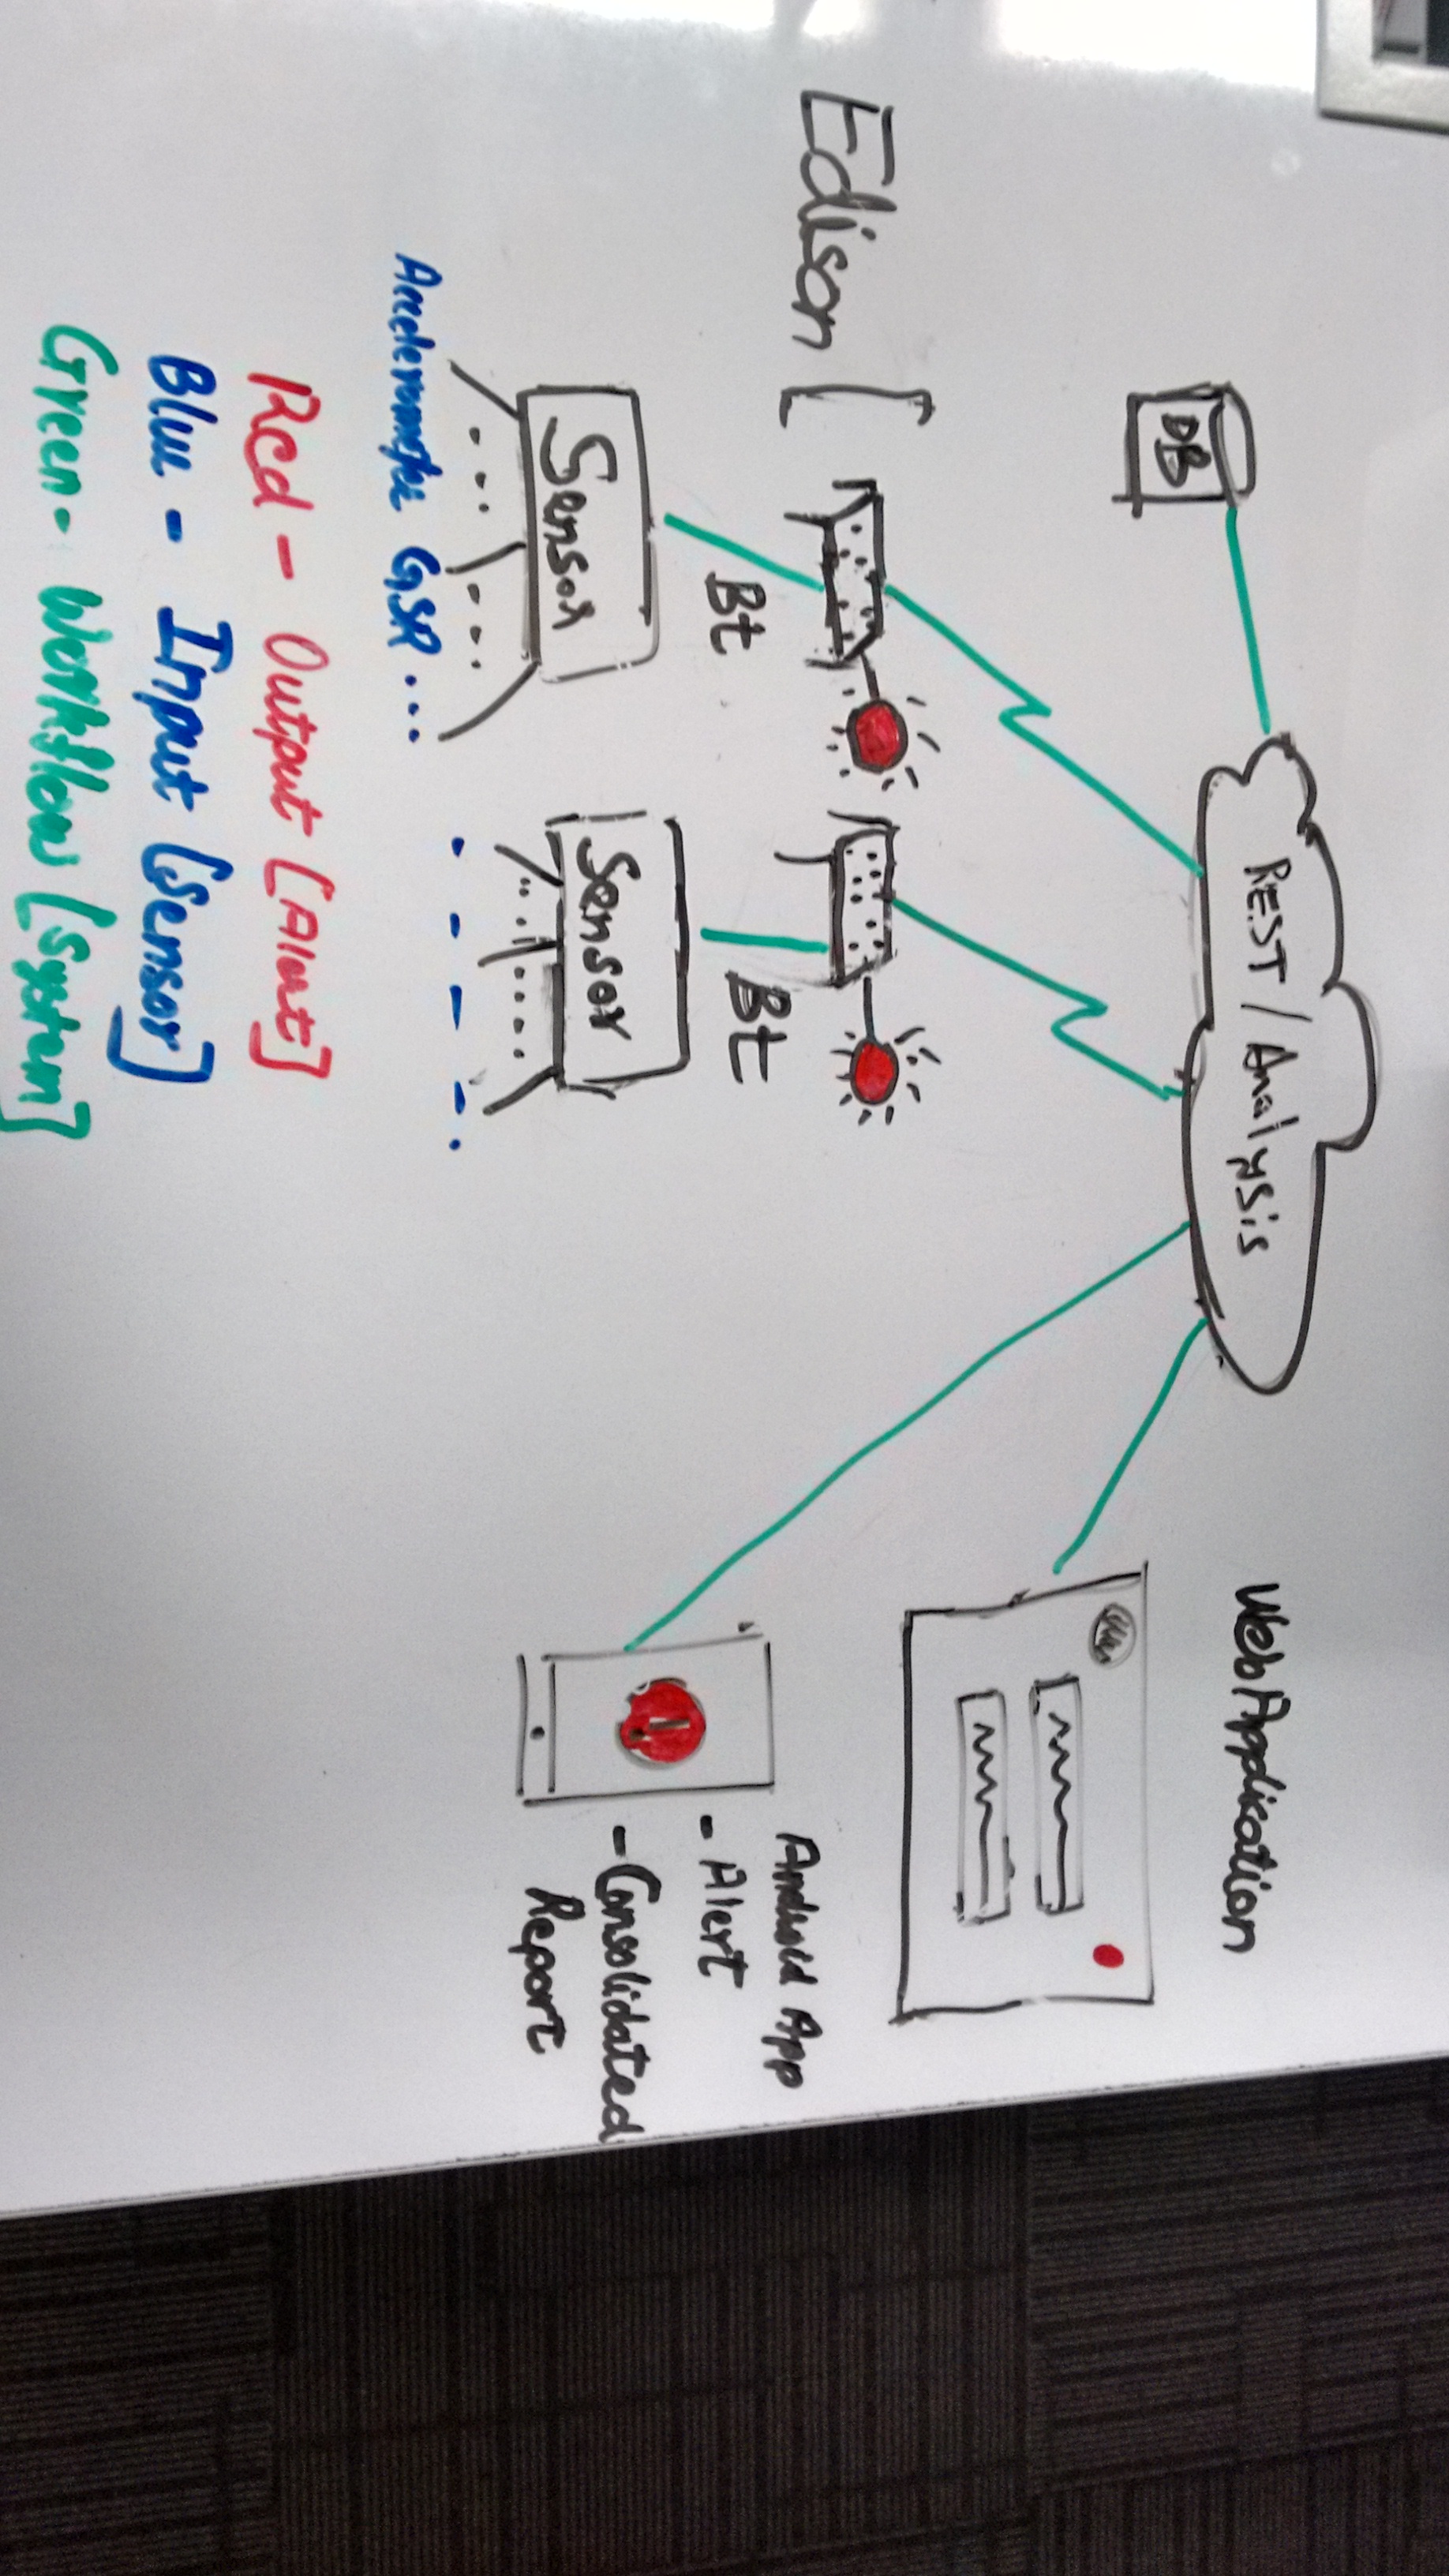 DB
REST / Analysis
Web Application
Edison [
Bt
Bt
Android App
- Alert
- Consolidated
Report
Sensor
Sensor
GSR ...
Red - Output [Alert]
Blue - Input [Sensor]
Green - Workflow [System]